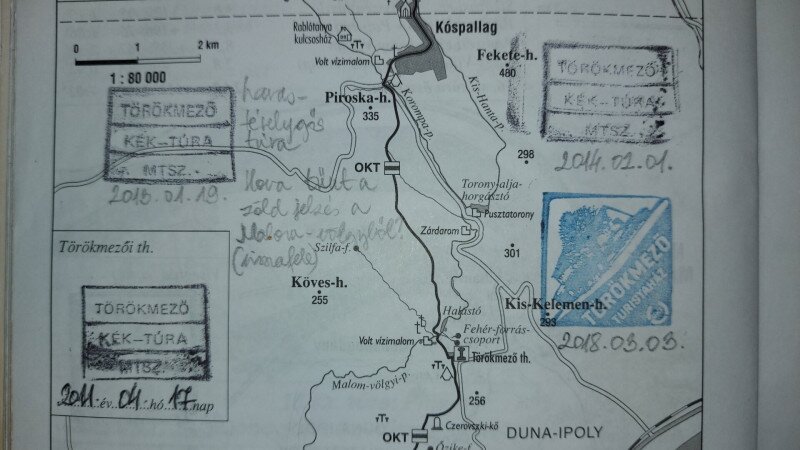 Kóspallag
Rablótanya
kulcsosház
Volt vízimalom
0 1 2 km
1 : 80 000
Fekete-h.
480
Kis-Hanta-p
Korompa-p
Piroska-h.
335
TÖRÖKMEZŐ
KÉK-TÚRA
MTSZ.
2013.01.19.
havas-
túra
TÖRÖKMEZŐ
KÉK-TÚRA
MTSZ
2014.02.01.
298
OKT
Hova tűnt a
zöld jelzés a
Malom-völgyből?
Torony-alja-
horgásztó
Pusztatorony
Zárdarom
301
Szilfa-f.
Köves-h.
255
Kis-Kelemen-h.
293
TÖRÖKMEZŐ
TURISTAHÁZ
2018.03.03.
Törökmezői th.
TÖRÖKMEZŐ
KÉK-TÚRA
MTSZ
2011. év 04. hó 17. nap
Halastó
Fehér-forrás-
csoport
Volt vízimalom
Törökmező th.
Malom-völgyi-p.
256
OKT
Czerovszki-kő
Őzike-f.
DUNA-IPOLY